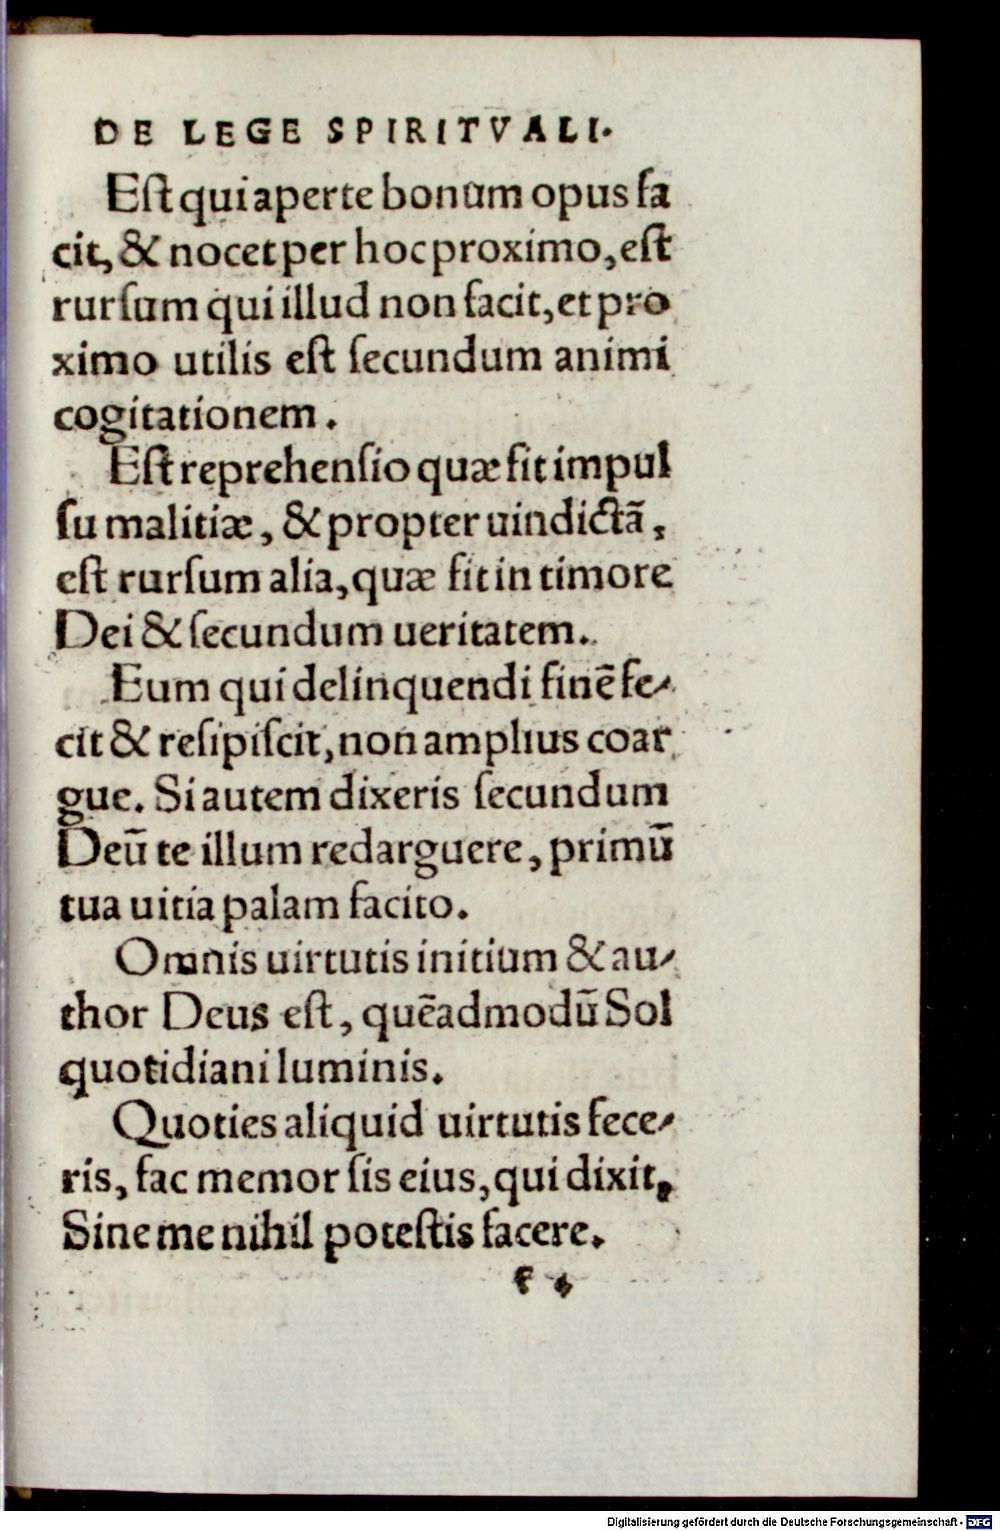 DE LEGE SPIRITVALI.
Eſt qui aperte bonum opus fa
cit, & nocet per hoc proximo, eſt
rurſum qui illud non facit, et pro
ximo utilis eſt ſecundum animi
cogitationem.
Eſt reprehenſio quæ fit impul
ſu malitiæ, & propter uindictã,
eſt rurſum alia, quæ fit in timore
Dei & ſecundum ueritatem.
Eum qui delinquendi finẽ fe-
cit & reſipiſcit, non amplius coar
gue. Si autem dixeris ſecundum
Deũ te illum redarguere, primũ
tua uitia palam facito.
Omnis uirtutis initium & au-
thor Deus eſt, quẽadmodũ Sol
quotidiani luminis.
Quoties aliquid uirtutis fece-
ris, fac memor ſis eius, qui dixit,
Sine me nihil poteſtis facere.
Digitalisierung gefördert durch die Deutsche Forschungsgemeinschaft - DFG